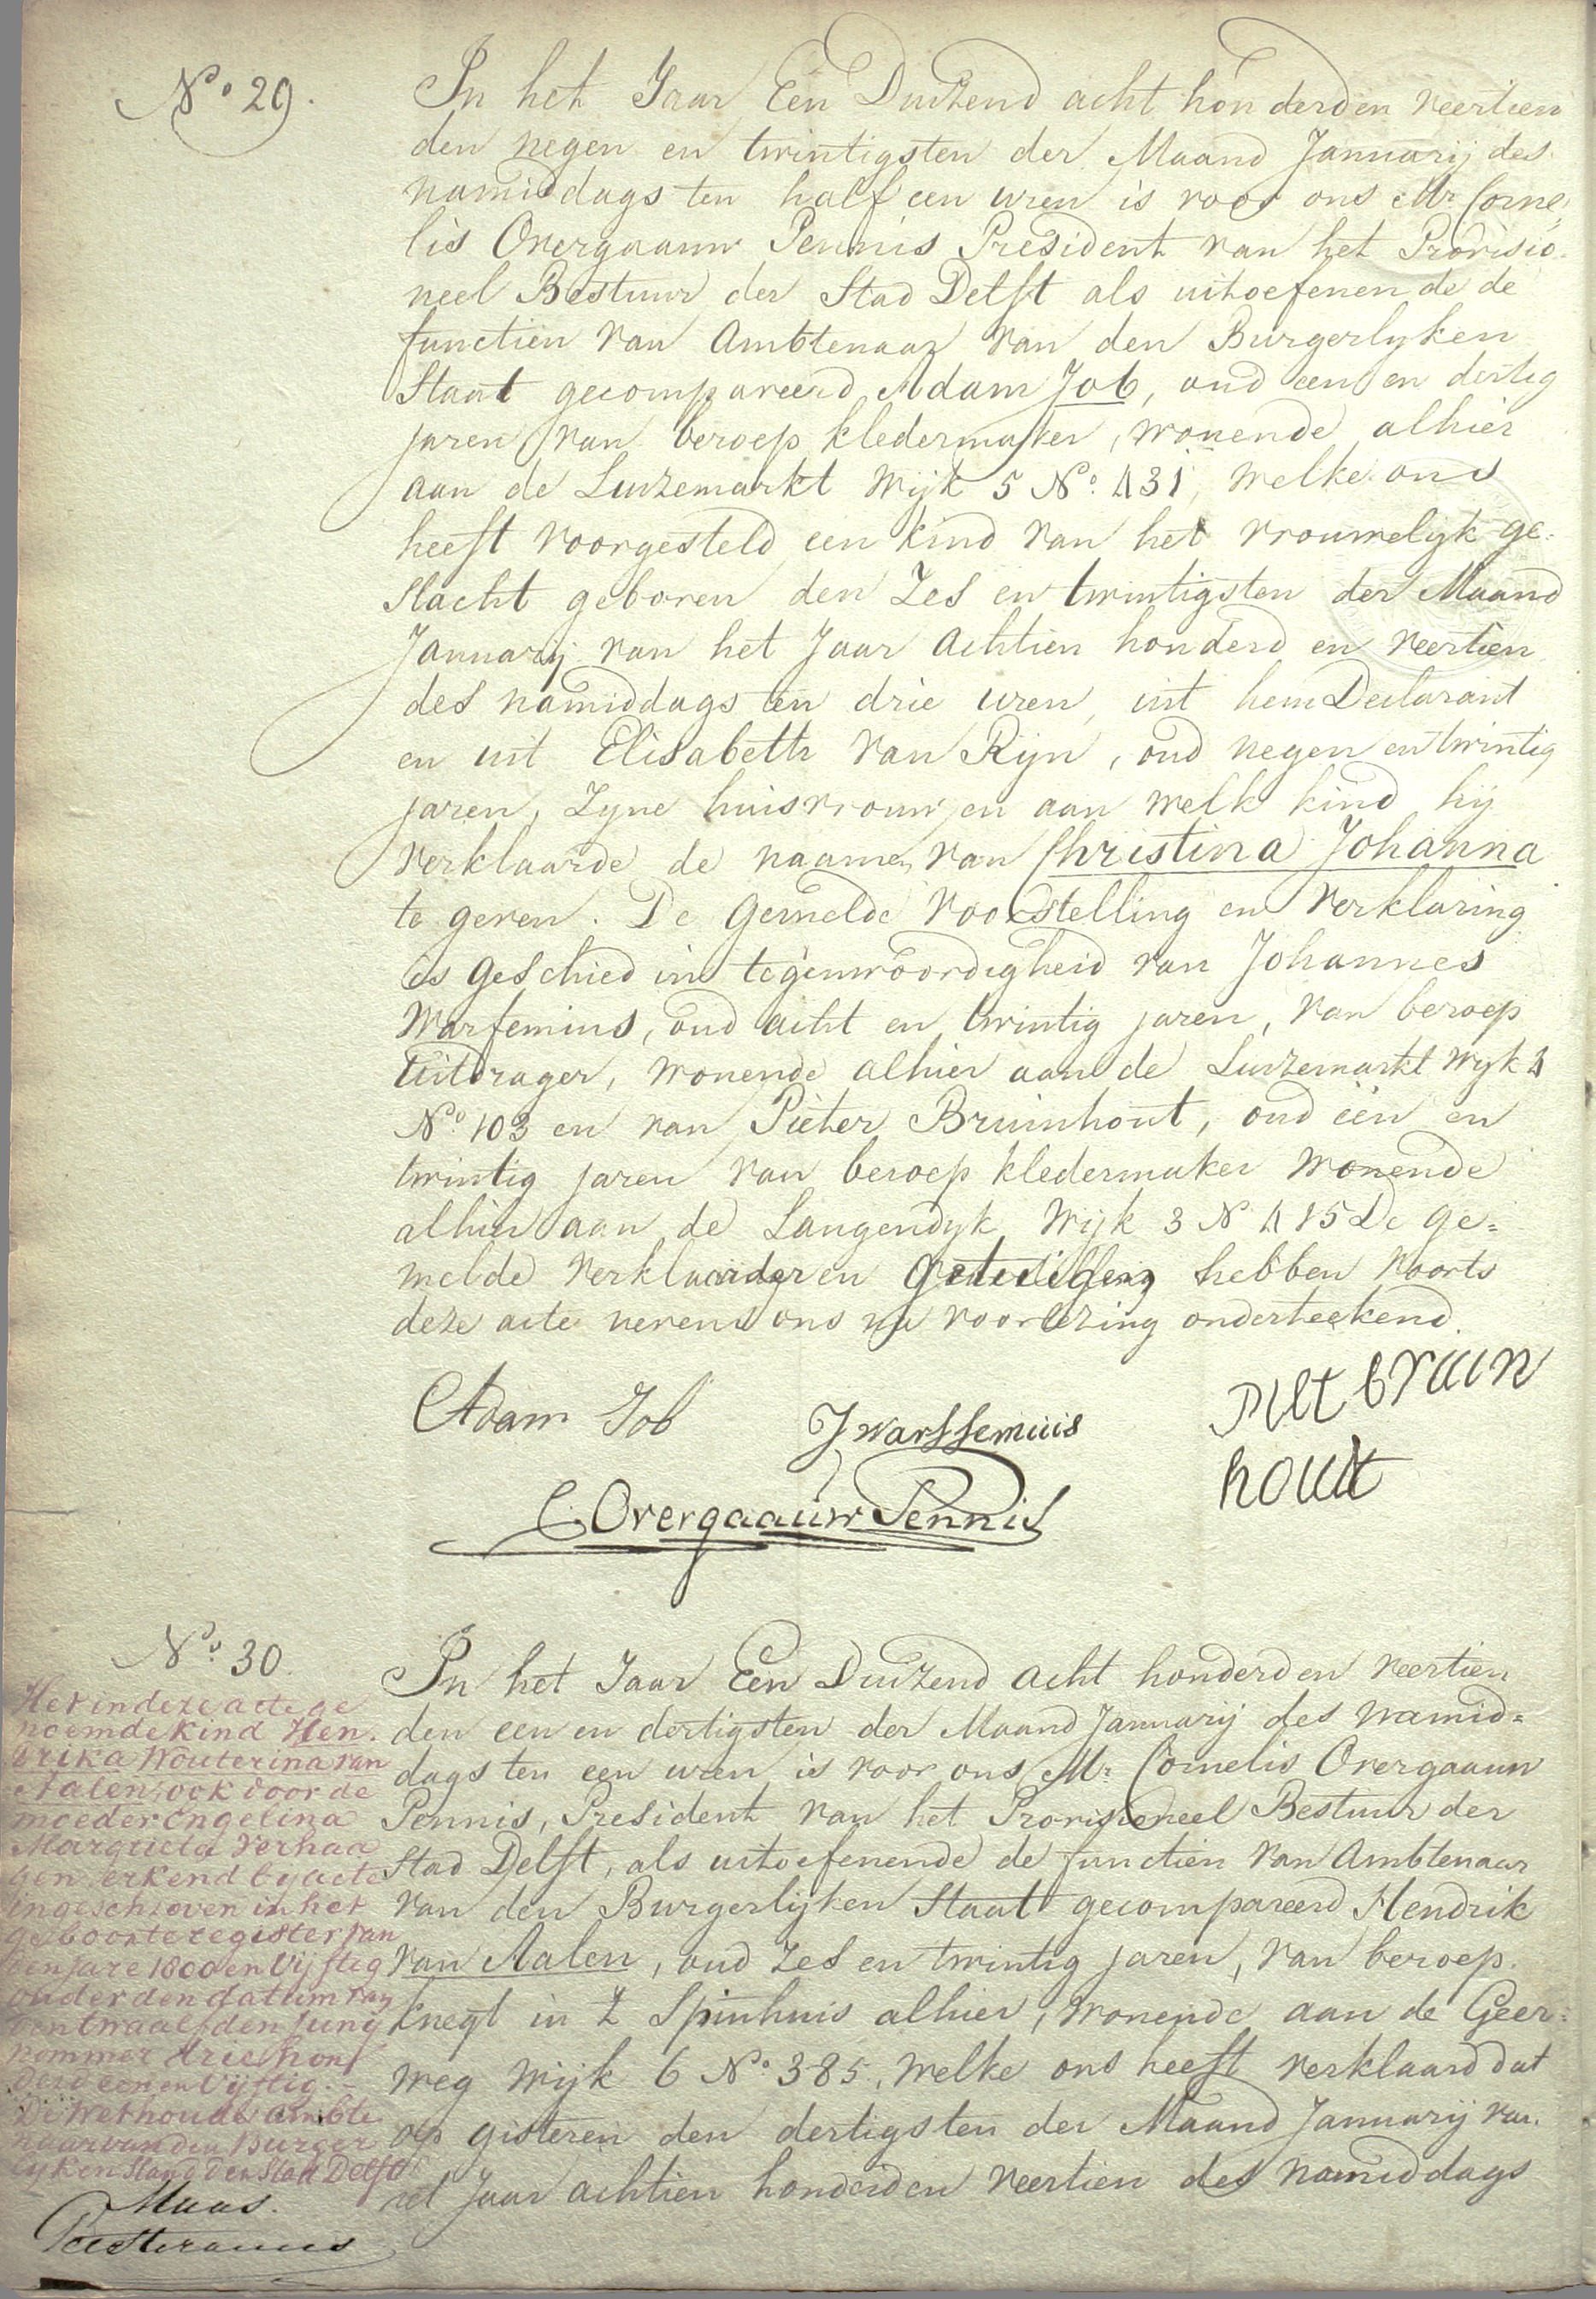 No. 29.
In het Jaar Een Duizend acht honderd en veertien
den negen en twintigsten der Maand Januarij des
namiddags ten half een uren is voor ons Mr. Corne,
lis Overgaauw Pennis President van het Provisio-
neel Bestuur der Stad Delft als uitoefenende de
functien van Ambtenaar van den Burgerlyken
Staat gecompareerd Adam Job, oud een en dertig
jaren van beroep kledermaker, wonende alhier
aan de Luizemarkt Wijk 5 No. 431, welke ons
heeft voorgesteld een kind van het vrouwelijk ge-
slacht geboren den Zes en twintigsten der Maand
Januarij van het Jaar achtien honderd en veertien
des namiddags ten drie uren, uit hem Declarant
en uit Elisabeth van Rijn, oud negen en twintig
jaren, Zyne huisvrouw en aan welk kind hij
verklaarde de naamen van Christina Johanna
te geven. De gemelde voorstelling en verklaring
is geschied in tegenwoordigheid van Johannes
Warfemius, oud acht en twintig jaren, van beroep
Uitdrager, wonende alhier aan de Luizemarkt Wijk 4
No. 103 en van Pieter Bruinhout, oud één en
twintig jaren van beroep kledermaker wonende
alhier aan de Langendyk Wijk 3 N 415 De ge-
melde verklaarder en getuigen hebben voorts
deze acte nevens ons na voorlezing onderteekend.
Adam Job
J warssemius
Piet bruin
houdt
C. Overgaauw Pennis
No. 30.
In het Jaar Een Duizend acht honderd en veertien
den een en dertigsten der Maand Januarij des namid-
dags ten een uren is voor ons Mr. Cornelis Overgaauw
Pennis, President van het Provisioneel Bestuur der
Stad Delft, als uitoefenende de functien van Ambtenaar
van den Burgerlijken Staat gecompareerd Hendrik
van Aalen, oud Zes en twintig jaren, van beroep
knegt in 't Spinhuis alhier, wonende aan de Geer-
weg Wijk 6 No. 385, welke ons heeft verklaard dat
op gisteren den dertigsten der Maand Januarij van
het Jaar achtien honderd en veertien des namiddags
Het in deze acte ge
noemde kind Hen.
drika Wouterina van
Aalen, ook door de
moeder Engelina
Margrieta Verhaa
gen, erkend by acte
ingeschreven in het
geboorteregister van
den jare 1800 en Vijftig
onder den datum van
den twaalfden Junij
nommer drie hon
derd een en Vijftig.
De Wethouder ambte
naar van den Burger
lyken Stand der Stad Delft
Maas.